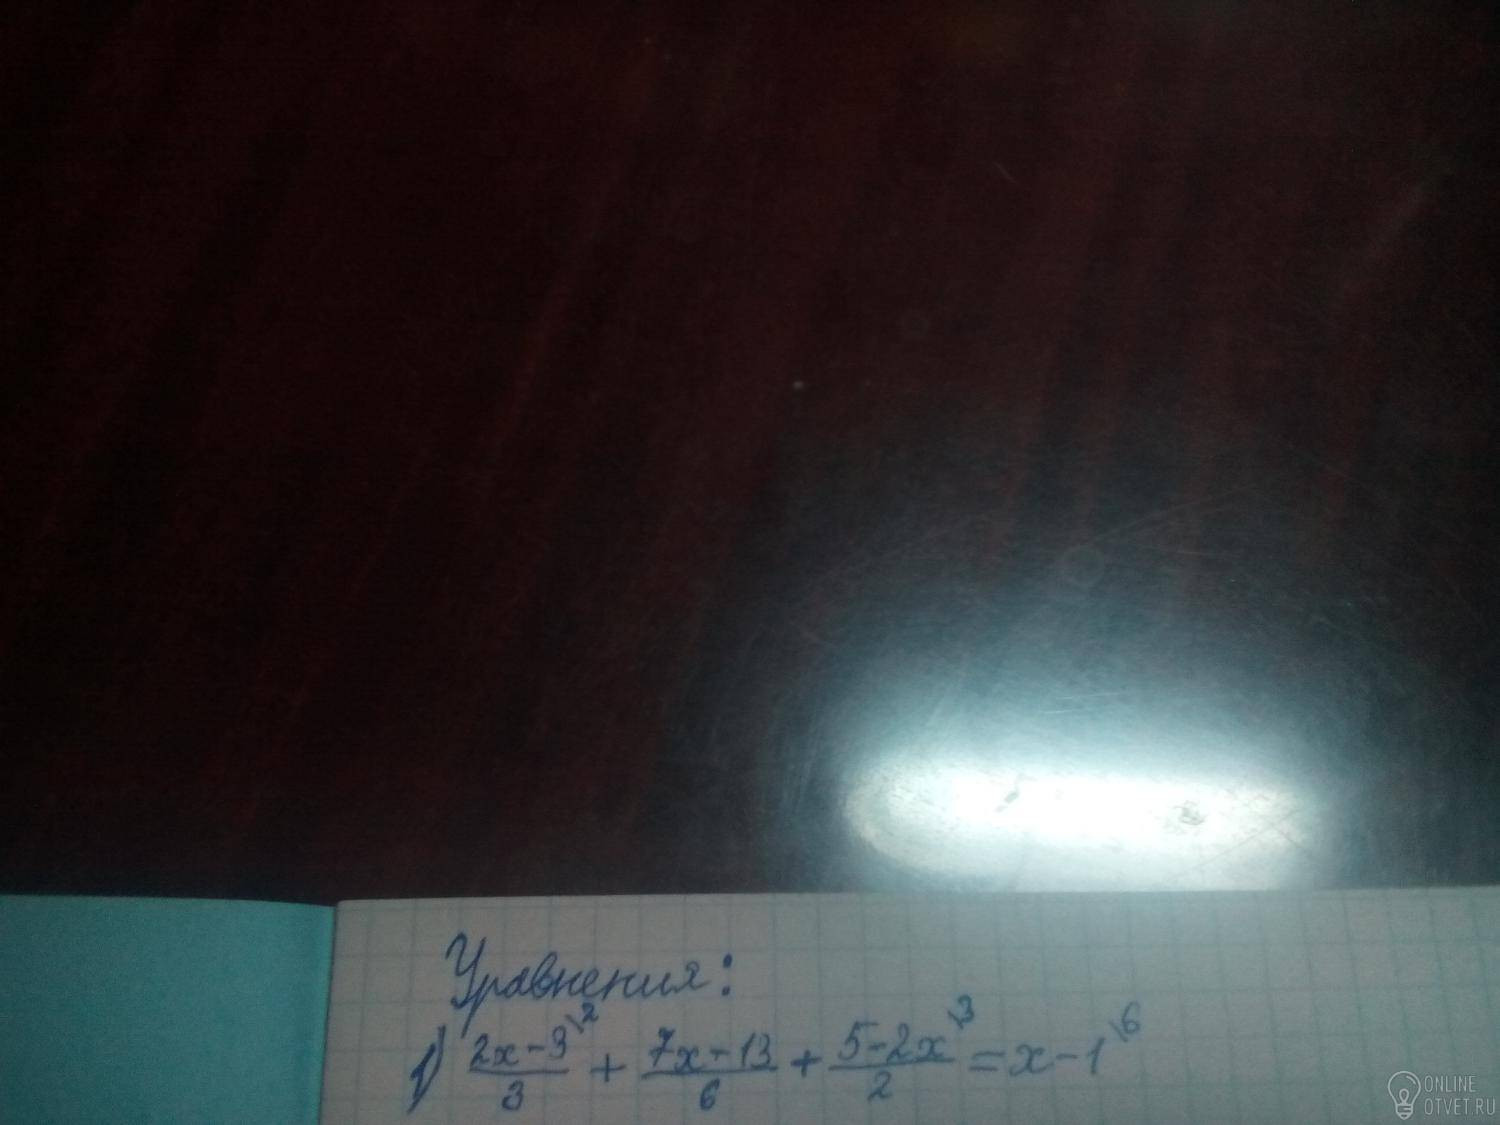 Уравнения:
1) \frac{2x-3^{\backslash 2}}{3} + \frac{7x-13}{6} + \frac{5-2x^{\backslash 3}}{2} = x-1^{\backslash 6}
ONLINE
OTVET.RU